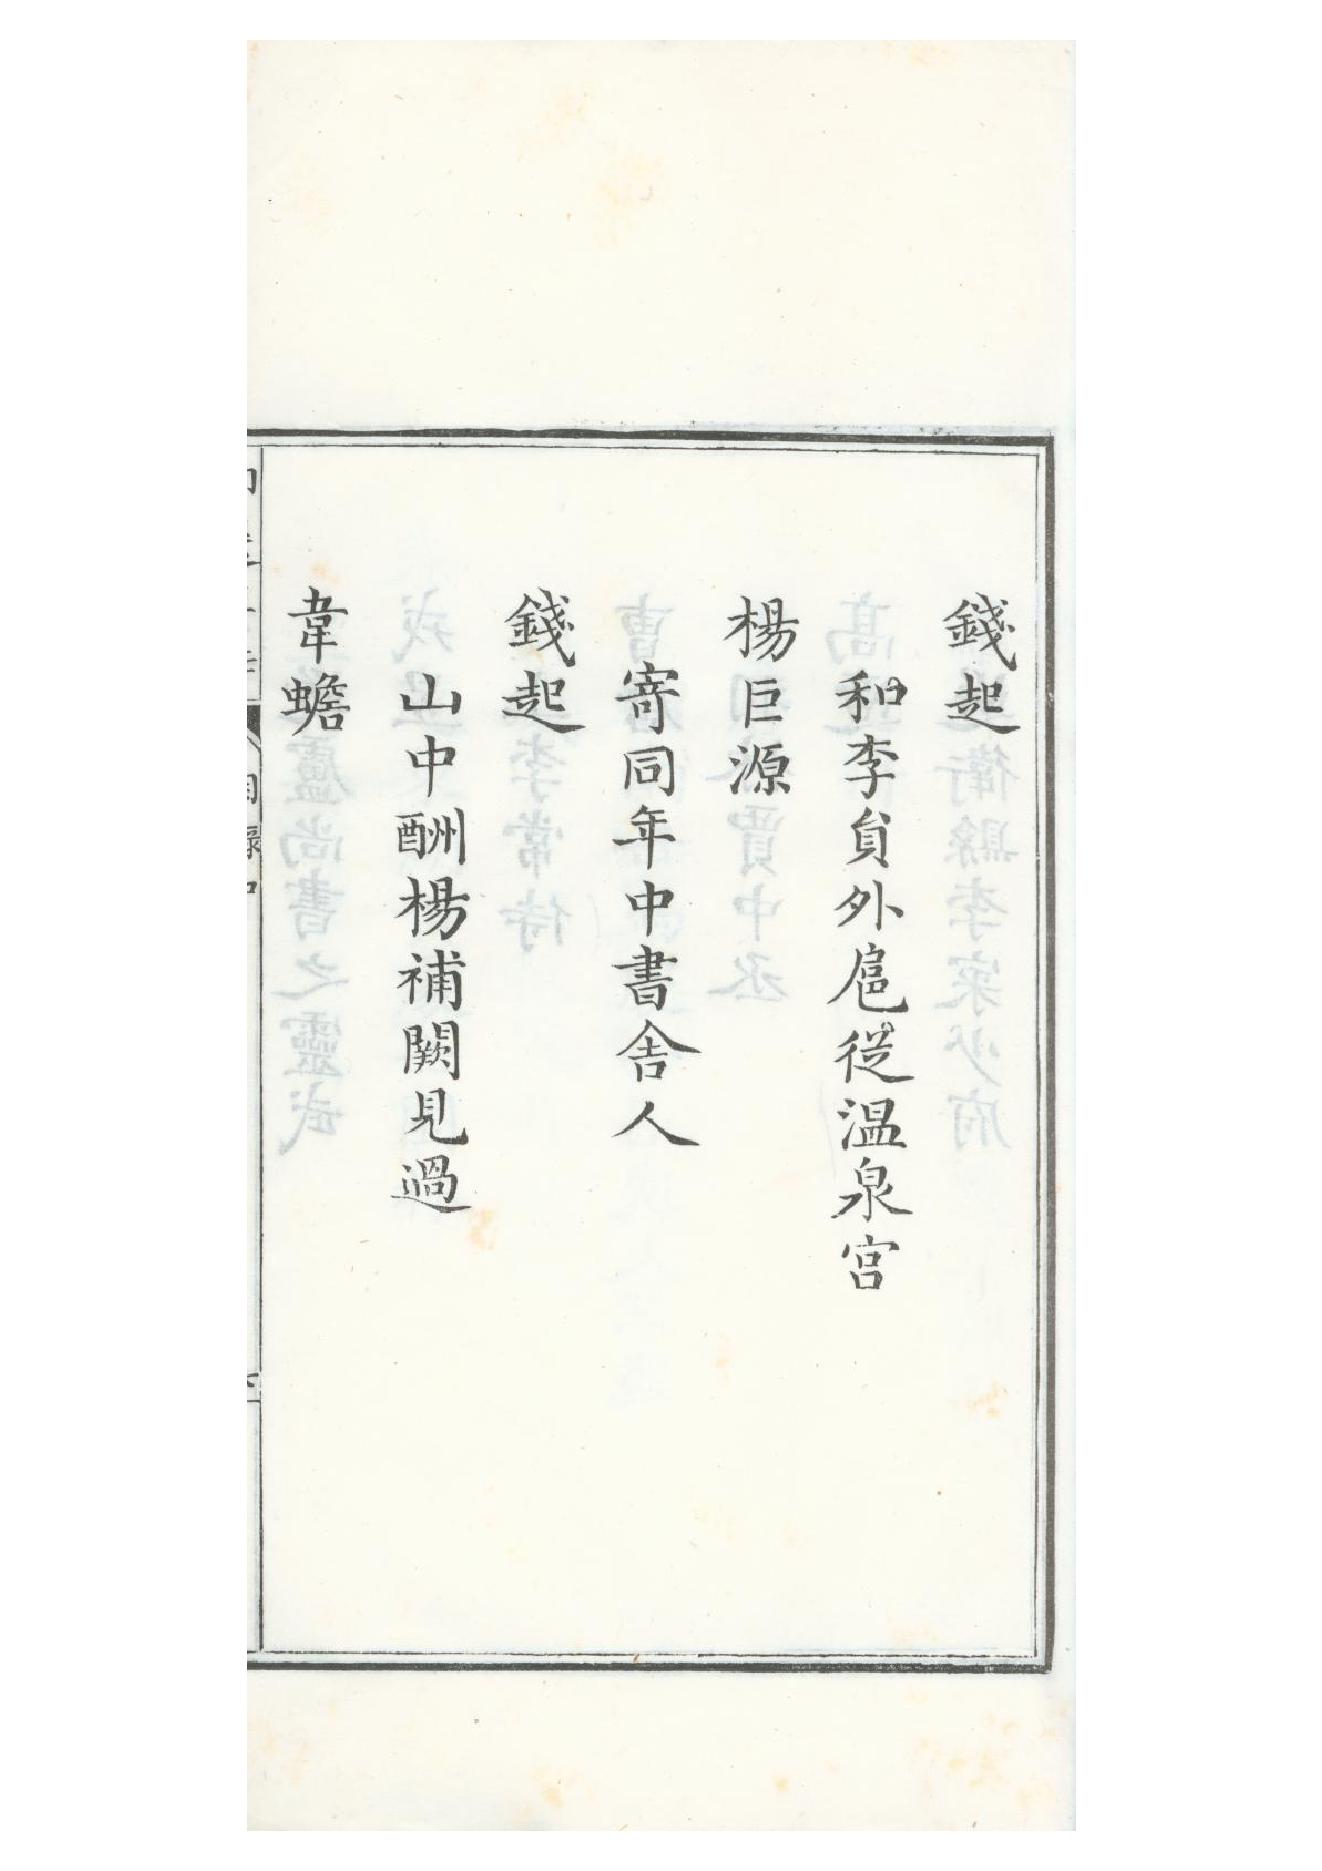 錢起
和李貟外扈從溫泉宮
楊巨源
寄同年中書舍人
錢起
山中酬楊補闕見過
韋蟾